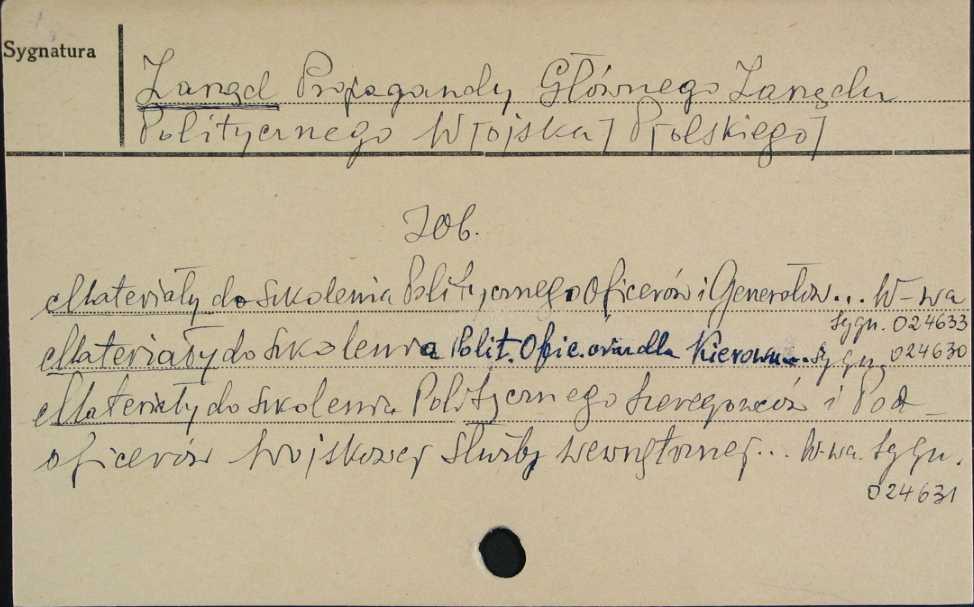 Sygnatura
Zarząd Propagandy Głównego Zarządu
Politycznego W[ojska] P[olskiego]
Zob.
Materiały do szkolenia Politycznego Oficerów i Generałów... W-wa
Sygn. 024633
Materiały do szkolenia Polit. Ofic. oraz dla Kierown... Sygn. 024630
Materiały do szkolenia Politycznego szeregowców i Pod-
oficerów Wojskowej Służby Wewnętrznej... W-wa. Sygn.
024631